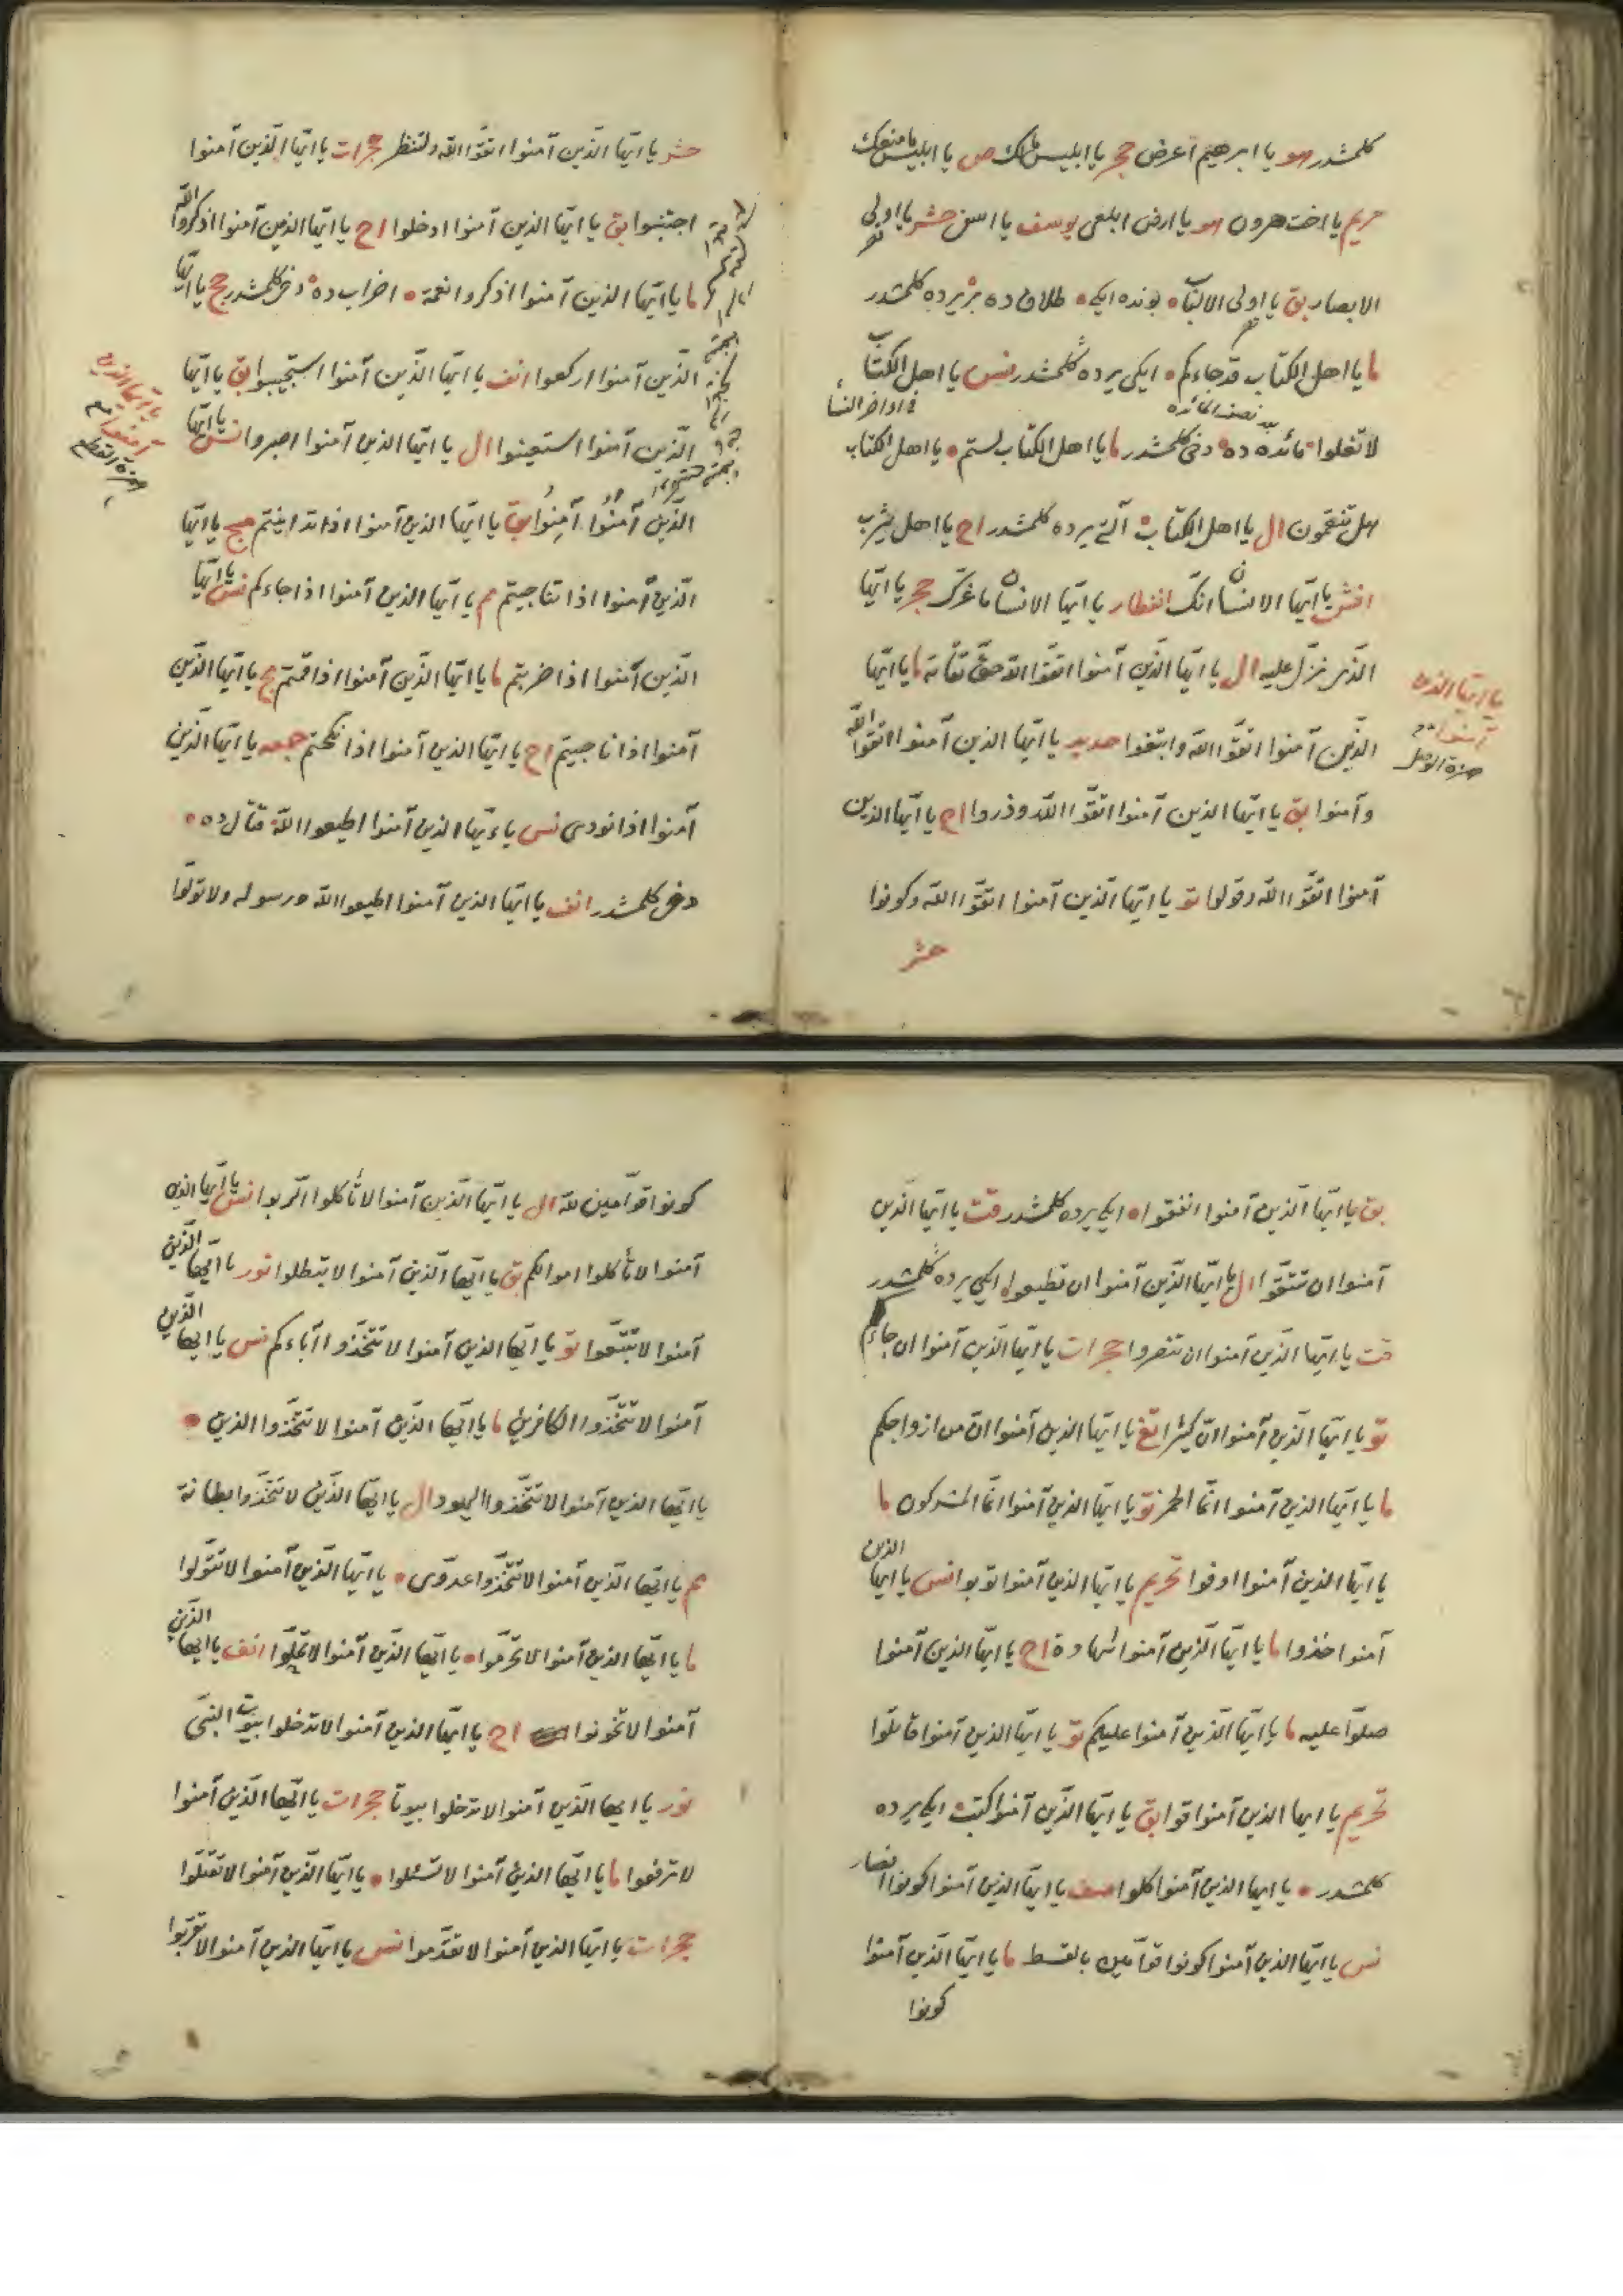 كلمشدر هو يا ابرهيم اعرض حجر يا ابليس مالك ص يا ابليس ما منعك
مريم يا اخت هرون هو يا ارض ابلعى يوسف يا اسفى حشر يا اولى
الابصار بق يا اولى الالباب بونده ايكى طلاق ده بر يرده كلمشدر
ما يا اهل الكتاب قد جاءكم ايكى يرده كلمشدر نس يا اهل الكتاب
فى اواخر النسا
نصف المائده
لا تغلوا مائده ده دخى كلمشدر ما يا اهل الكتاب لستم يا اهل الكتاب
هل تنقمون ال يا اهل الكتاب آلتى يرده كلمشدر اح يا اهل يثرب
انش يا ايها الانسان انك انفطار يا ايها الانسان ما غرك حجر يا ايها
الذى نزل عليه ال يا ايها الذين آمنوا اتقوا الله حق تقاته ما يا ايها
يا ايها الذين
آمنوا مع
همزة الوصل
الذين آمنوا اتقوا الله وابتغوا حديد يا ايها الذين آمنوا اتقوا الله
وآمنوا بق يا ايها الذين آمنوا اتقوا الله وذروا اح يا ايها الذين
آمنوا اتقوا الله وقولوا تو يا ايها الذين آمنوا اتقوا الله وكونوا
حشر
حشر يا ايها الذين آمنوا اتقوا الله ولتنظر حجرات يا ايها الذين آمنوا
اجتنبوا بق يا ايها الذين آمنوا ادخلوا اح يا ايها الذين آمنوا اذكروا الله
ما يا ايها الذين آمنوا اذكروا نعمة احزاب ده دخى كلمشدر حج يا ايها
الذين آمنوا اركعوا انف يا ايها الذين آمنوا استجيبوا بق يا ايها
يا ايها الذين
آمنوا مع
همزة القطع
الذين آمنوا استعينوا ال يا ايها الذين آمنوا اصبروا نس يا ايها
الذين آمنوا آمنوا بق يا ايها الذين آمنوا اذا تداينتم مج يا ايها
الذين آمنوا اذا تناجيتم مم يا ايها الذين آمنوا اذا جاءكم نس يا ايها
الذين آمنوا اذا ضربتم ما يا ايها الذين آمنوا اذا قمتم مج يا ايها الذين
آمنوا اذا ناجيتم اح يا ايها الذين آمنوا اذا نكحتم جمعه يا ايها الذين
آمنوا اذا نودى نس يا ايها الذين آمنوا اطيعوا الله قتال ده
دخى كلمشدر انف يا ايها الذين آمنوا اطيعوا الله ورسوله ولا تولوا
بق يا ايها الذين آمنوا انفقوا ايكى يرده كلمشدر قت يا ايها الذين
آمنوا ان تتقوا ال يا ايها الذين آمنوا ان تطيعوا ايكى يرده كلمشدر
قت يا ايها الذين آمنوا ان تنصروا حجرات يا ايها الذين آمنوا ان جاءكم
تو يا ايها الذين آمنوا ان كثيرا تغ يا ايها الذين آمنوا ان من ازواجكم
ما يا ايها الذين آمنوا انما الخمر تو يا ايها الذين آمنوا انما المشركون ما
يا ايها الذين آمنوا اوفوا تحريم يا ايها الذين آمنوا توبوا نس يا ايها الذين
آمنوا خذوا ما يا ايها الذين آمنوا شهادة اح يا ايها الذين آمنوا
صلوا عليه ما يا ايها الذين آمنوا عليكم تو يا ايها الذين آمنوا قاتلوا
تحريم يا ايها الذين آمنوا قوا بق يا ايها الذين آمنوا كتب ايكى يرده
كلمشدر يا ايها الذين آمنوا كلوا صف يا ايها الذين آمنوا كونوا انصار
نس يا ايها الذين آمنوا كونوا قوامين بالقسط ما يا ايها الذين آمنوا
كونوا
كونوا قوامين لله ال يا ايها الذين آمنوا لا تأكلوا الربوا نس يا ايها الذين
آمنوا لا تأكلوا اموالكم بق يا ايها الذين آمنوا لا تبطلوا نور يا ايها الذين
آمنوا لا تتبعوا تو يا ايها الذين آمنوا لا تتخذوا آباءكم نس يا ايها الذين
آمنوا لا تتخذوا الكافرين ما يا ايها الذين آمنوا لا تتخذوا الذين
يا ايها الذين آمنوا لا تتخذوا اليهود ال يا ايها الذين لا تتخذوا بطانة
مم يا ايها الذين آمنوا لا تتخذوا عدوى يا ايها الذين آمنوا لا تتولوا
ما يا ايها الذين آمنوا لا تحرموا يا ايها الذين آمنوا لا تحلوا انف يا ايها الذين
آمنوا لا تخونوا اح يا ايها الذين آمنوا لا تدخلوا بيوت النبى
نور يا ايها الذين آمنوا لا تدخلوا بيوتا حجرات يا ايها الذين آمنوا
لا ترفعوا ما يا ايها الذين آمنوا لا تسئلوا يا ايها الذين آمنوا لا تقتلوا
حجرات يا ايها الذين آمنوا لا تقدموا نس يا ايها الذين آمنوا لا تقربوا